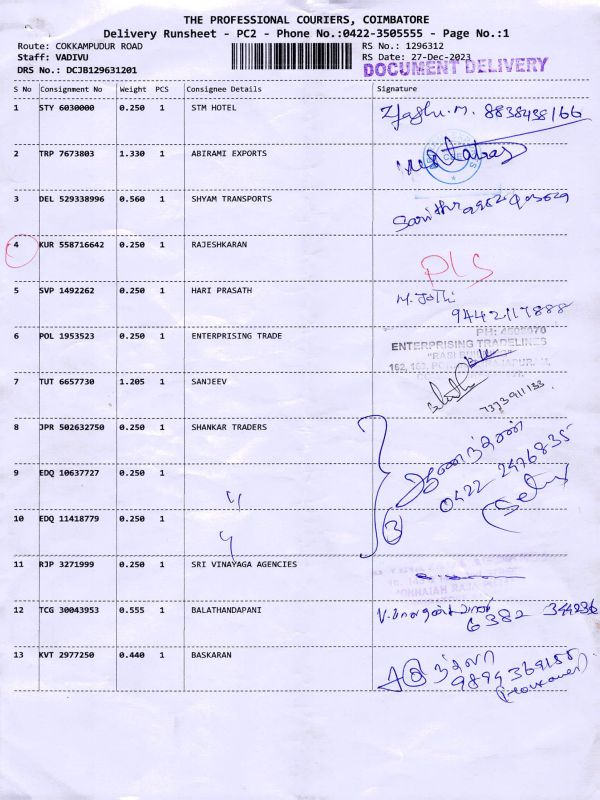 THE PROFESSIONAL COURIERS, COIMBATORE
Delivery Runsheet - PC2 - Phone No.:0422-3505555 - Page No.:1
Route: COKKAMPUDUR ROAD
Staff: VADIVU
DRS No.: DCJB129631201
RS No.: 1296312
RS Date: 27-Dec-2023
DOCUMENT DELIVERY
S No Consignment No Weight PCS Consignee Details Signature
1 STY 6030000 0.250 1 STM HOTEL 8838438166
2 TRP 7673803 1.330 1 ABIRAMI EXPORTS
3 DEL 529338996 0.560 1 SHYAM TRANSPORTS
4 KUR 558716642 0.250 1 RAJESHKARAN PLS
5 SVP 1492262 0.250 1 HARI PRASATH M. Jothi
9442117888
6 POL 1953523 0.250 1 ENTERPRISING TRADE
ENTERPRISING TRADELINES
7 TUT 6657730 1.205 1 SANJEEV
7373911133
8 JPR 502632750 0.250 1 SHANKAR TRADERS
0422 2476835
9 EDQ 10637727 0.250 1 "
10 EDQ 11418779 0.250 1 " 3
11 RJP 3271999 0.250 1 SRI VINAYAGA AGENCIES
12 TCG 30043953 0.555 1 BALATHANDAPANI
6382 344236
13 KVT 2977250 0.440 1 BASKARAN